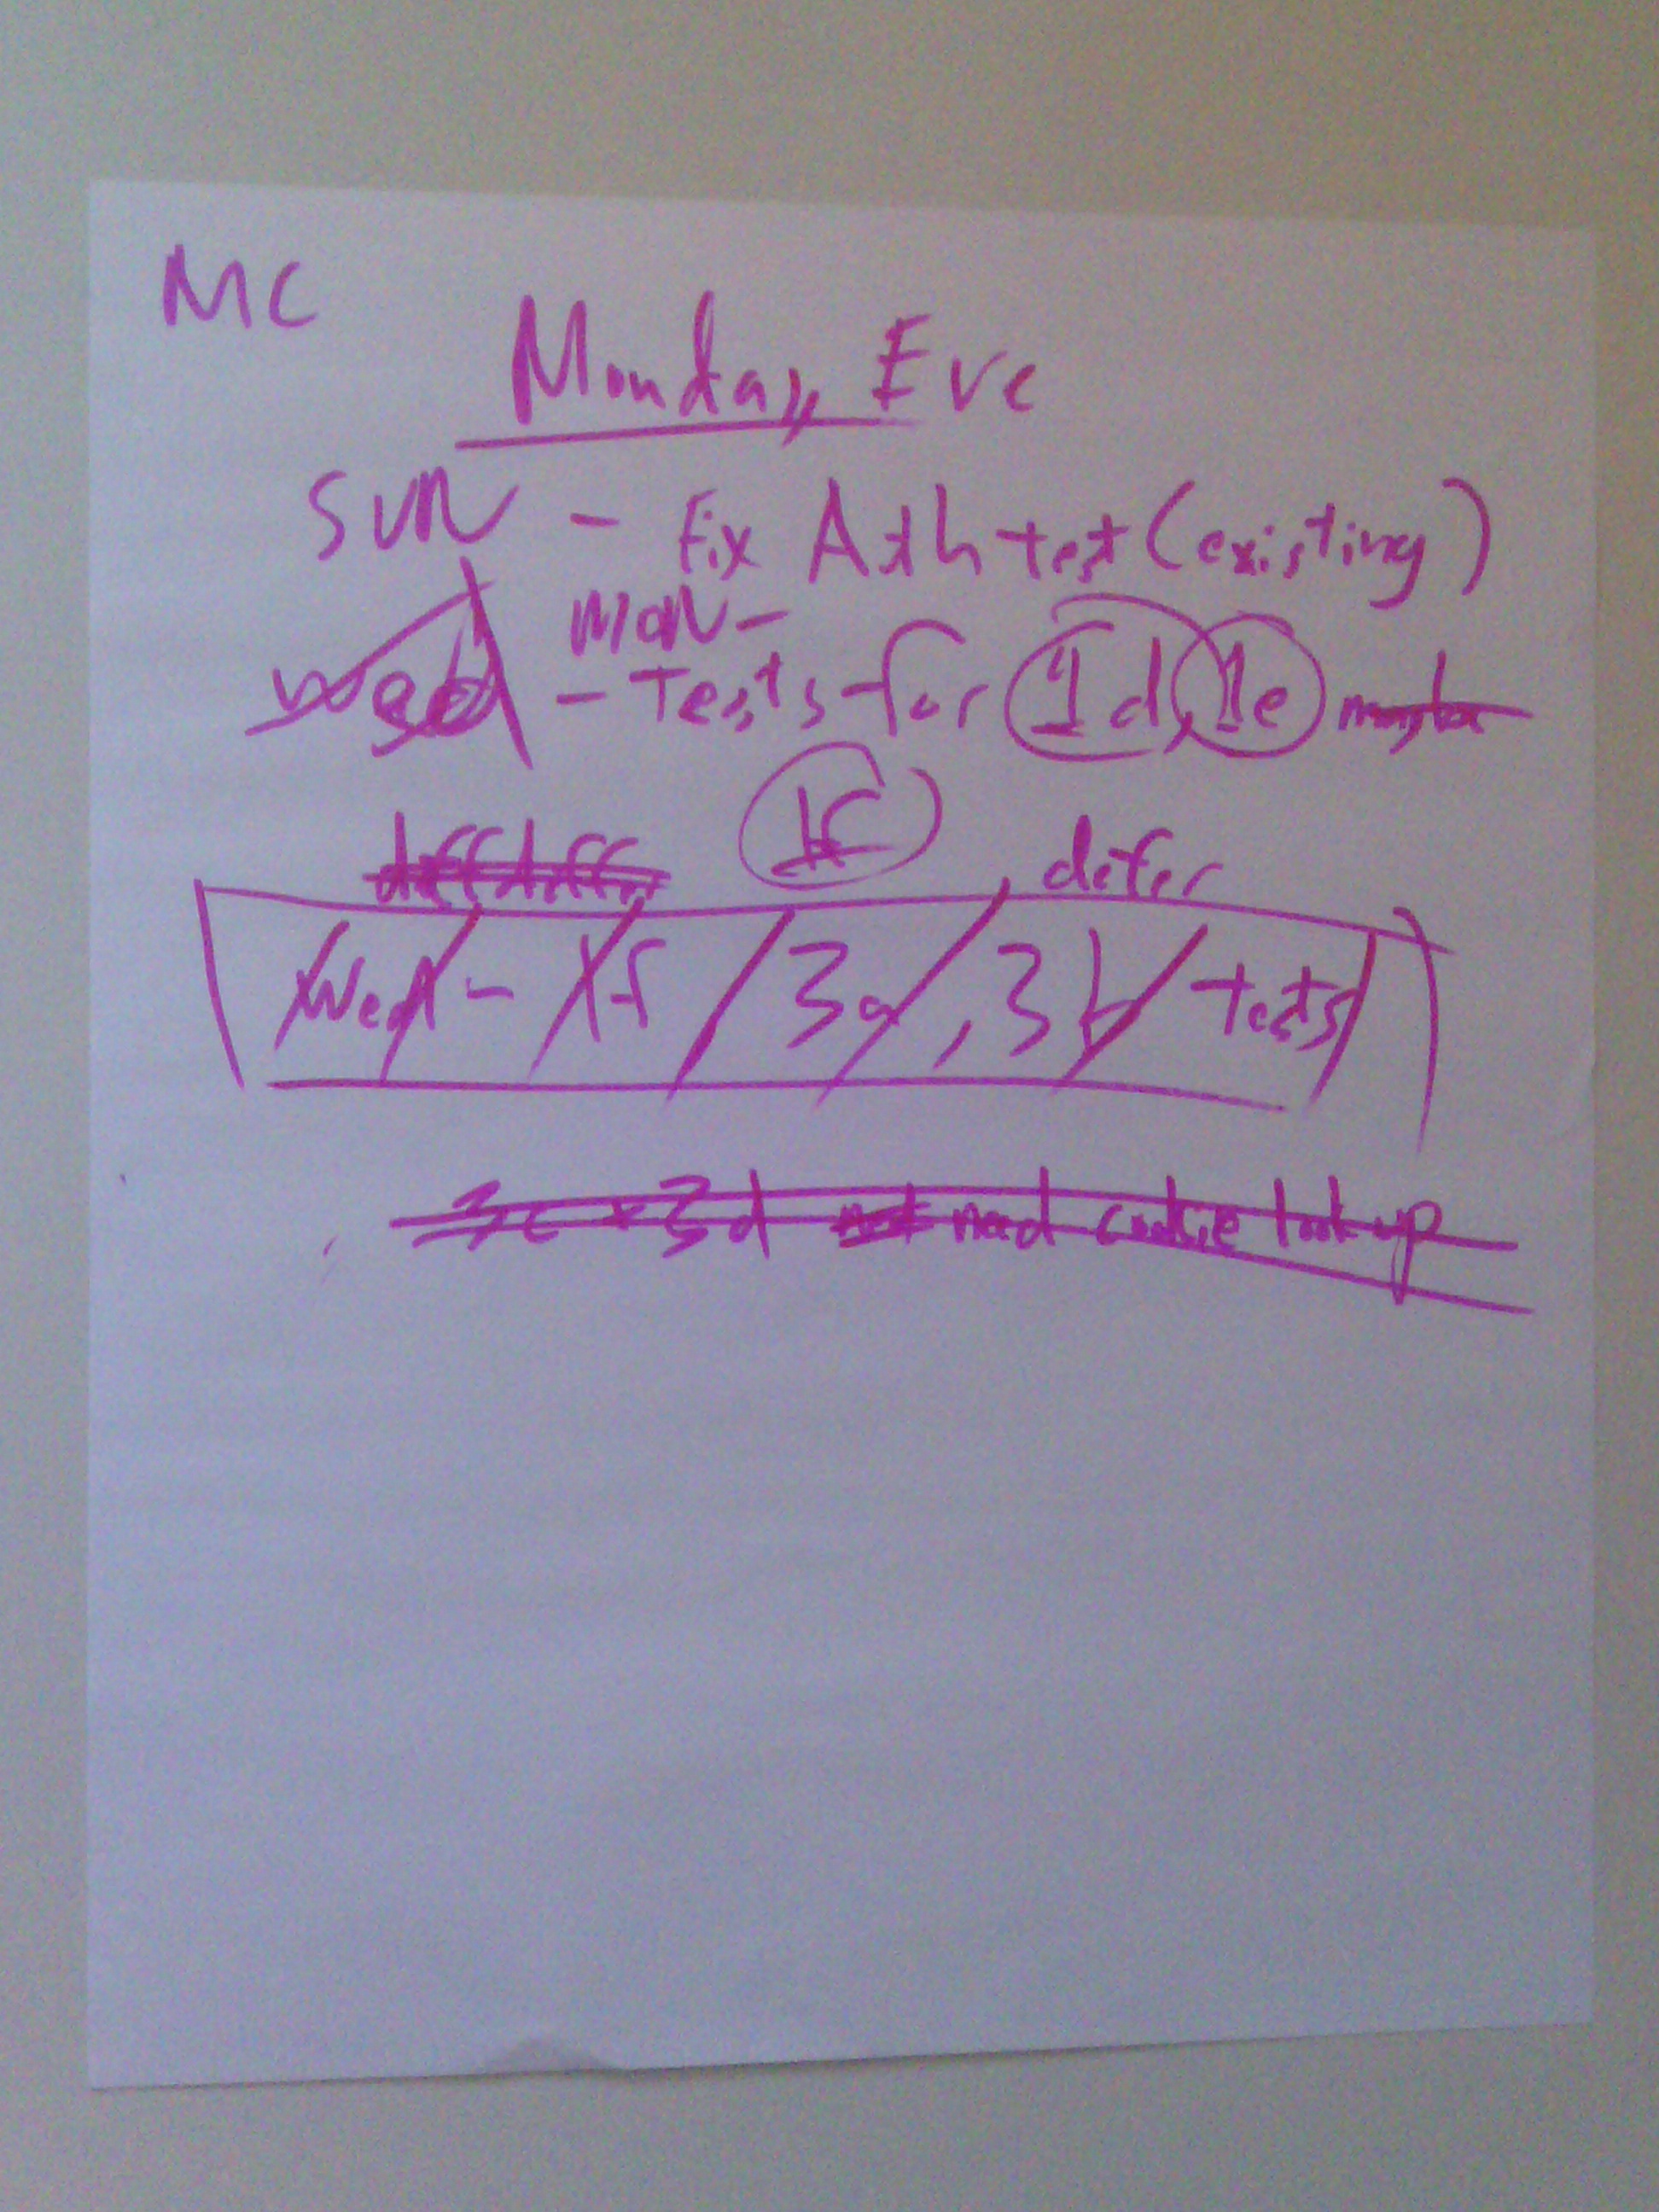 MC
Monday Eve
SUN - Fix Ath test (existing)
MON -
Wed - Tests for 1d, 1e maybe
1f defer
Wed - 1f / 3a, 3b tests
3c + 3d not need cookie lookup